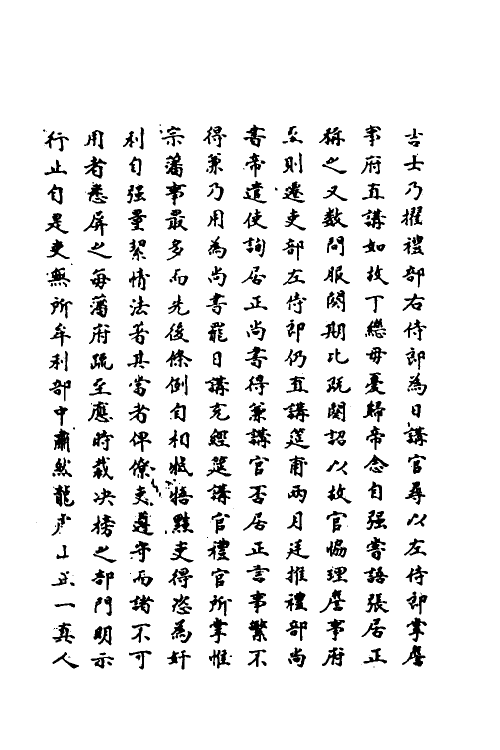 吉士乃擢禮部右侍郎為日講官尋以左侍郎掌詹
事府直講如故丁繼母憂歸帝念自强嘗語張居正
稱之又數問服闋期比既闋詔以故官協理詹事府
至則遷吏部左侍郎仍直講筵甫兩月廷推禮部尚
書帝遣使詢居正尚書得兼講官否居正言事繁不
得兼乃用為尚書罷日講充經筵講官禮官所掌惟
宗藩事最多而先後條例自相牴牾黠吏得恣為奸
利自强量絜情法著其當者俾僚吏遵守而諸不可
用者悉屏之每藩府疏至應時裁决榜之部門明示
行止自是吏無所牟利部中肅然龍虎山正一真人